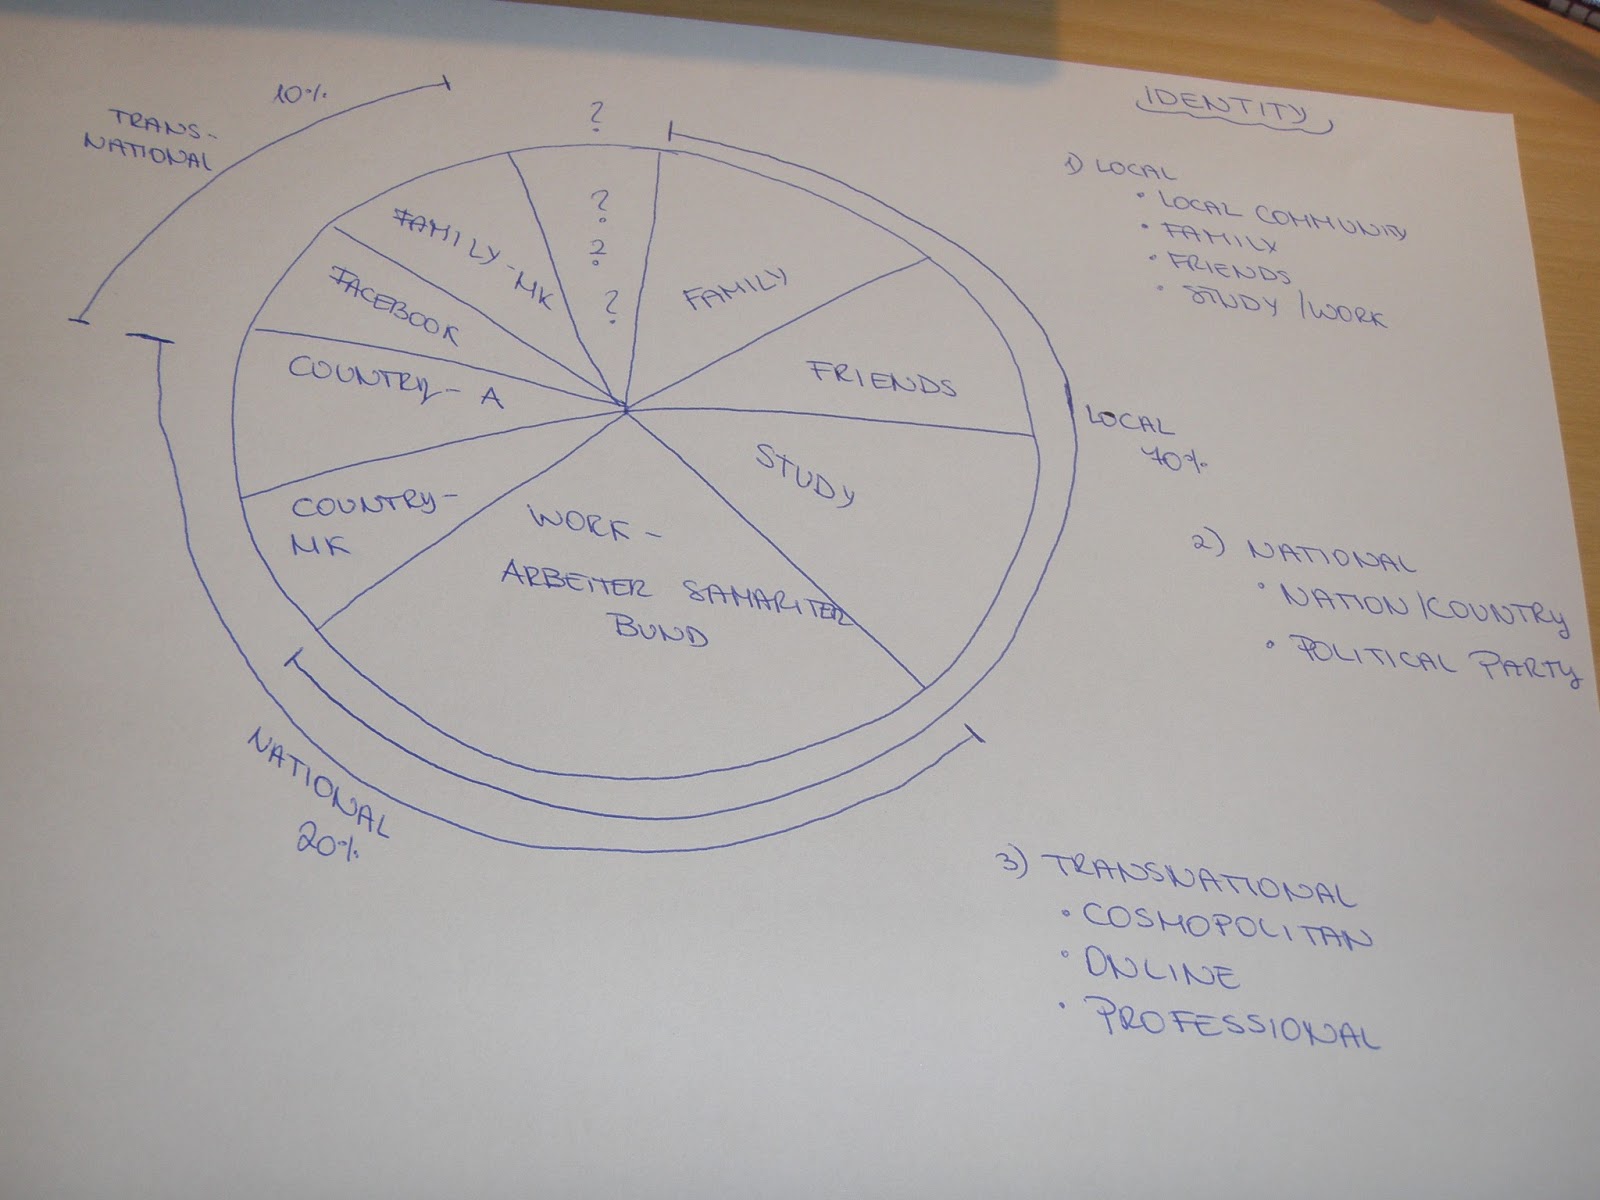 IDENTITY
1) LOCAL
• LOCAL COMMUNITY
• FAMILY
• FRIENDS
• STUDY / WORK
2) NATIONAL
• NATION/COUNTRY
• POLITICAL PARTY
3) TRANSNATIONAL
• COSMOPOLITAN
• ONLINE
• PROFESSIONAL
10%
TRANS-
NATIONAL
?
?
?
?
FAMILY
FRIENDS
STUDY
WORK -
ARBEITER SAMARITER
BUND
COUNTRY-
MK
COUNTRY - A
FACEBOOK
FAMILY - MK
LOCAL
70%
NATIONAL
20%